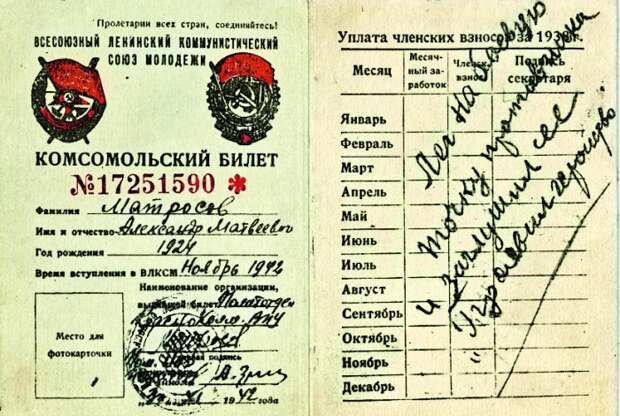 Пролетарии всех стран, соединяйтесь!
ВСЕСОЮЗНЫЙ ЛЕНИНСКИЙ КОММУНИСТИЧЕСКИЙ
СОЮЗ МОЛОДЕЖИ
КОМСОМОЛЬСКИЙ БИЛЕТ
№17251590 *
Фамилия Матросов
Имя и отчество Александр Матвеевич
Год рождения 1924
Время вступления в ВЛКСМ Ноябрь 1942
Наименование организации,
выдавшей билет Политотдел
подпись
1942 года
Место для
фотокарточки
Уплата членских взносов за 193 г.
Месяц
Месяч-
ный за-
работок
Членск.
взнос
Подпись
секретаря
Январь
Февраль
Март
Апрель
Май
Июнь
Июль
Август
Сентябрь
Октябрь
Ноябрь
Декабрь
Лег на боевую
точку противника
и заглушил ее
Проявил геройство